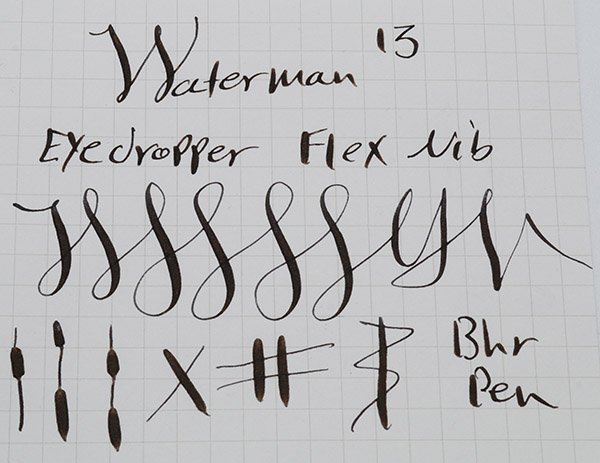 Waterman 13
Eyedropper Flex Nib
x #
Bhr
Pen